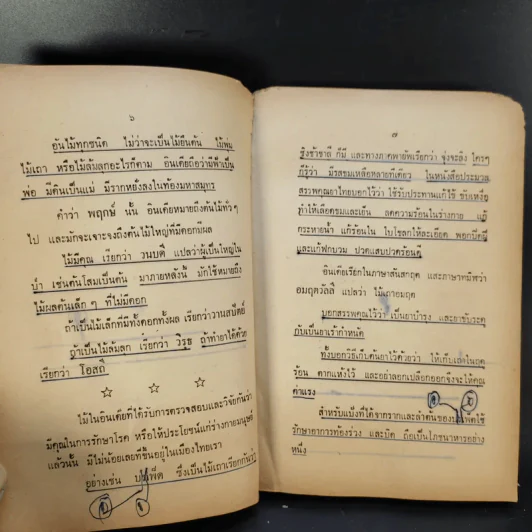 ๖
อันไม้ทุกชนิด ไม่ว่าจะเป็นไม้ยืนต้น ไม้พุ่ม
ไม้เถา หรือไม้ล้มลุกอะไรก็ตาม อินเดียถือว่ามีฟ้าเป็น
พ่อ มีดินเป็นแม่ มีรากหยั่งลงในท้องมหาสมุทร
คำว่า พฤกษ์ นั้น อินเดียหมายถึงต้นไม้ทั่วๆ
ไป และมักจะเจาะจงถึงต้นไม้ใหญ่ที่มีดอกมีผล
ไม้มีคุณ เรียกว่า วนบดี แปลว่าผู้เป็นใหญ่ใน
ป่า เช่นต้นโสมเป็นต้น มาภายหลังนี้ มักใช้หมายถึง
ไม้ผลต้นเล็กๆ ที่ไม่มีดอก
ถ้าเป็นไม้เล็กที่มีทั้งดอกทั้งผล เรียกว่าวานสปัตย์
ถ้าเป็นไม้ล้มลุก เรียกว่า วิรุธ ถ้าทำยาได้ด้วย
เรียกว่า โอสถี
☆ ☆ ☆
ไม้ในอินเดียที่ได้รับการตรวจสอบและวิจัยกันว่า
มีคุณในการรักษาโรค หรือให้ประโยชน์แก่ร่างกายมนุษย์
แล้วนั้น มีไม่น้อยเลยที่ขึ้นอยู่ในเมืองไทยเรา
อย่างเช่น ซึ่งเป็นไม้เถาเรียกกันว่า
๗
ชิงช้าชาลี ก็มี และทางภาคพายัพเรียกว่า จุ่งจะลิง ใครๆ
ก็รู้ว่า มีรสขมเหลือหลายทีเดียว ในหนังสือประมวล
สรรพคุณยาไทยบอกไว้ว่า ใช้รับประทานแก้ไข้ ขับเหงื่อ
ทำให้เลือดชุ่มและเย็น ลดความร้อนในร่างกาย แก้
กระหายน้ำ แก้ร้อนใน ใบโขลกให้ละเอียด พอกฝีดี
และแก้ฟกบวม ปวดแสบปวดร้อนดี
อินเดียเรียกในภาษาสันสกฤต และภาษาฑมิฬว่า
อมฤตวัลลี แปลว่า ไม้เถาอมฤต
บอกสรรพคุณไว้ว่า เป็นยาบำรุง และยาขับระดู
กับเป็นยาเร้ากำหนัด
ทั้งบอกวิธีเก็บต้นยาไว้ด้วยว่า ให้เก็บเล่ในฤดู
ร้อน ตากแห้งไว้ และอย่าลอกเปลือกออกจึงจะให้คุณ
ค่าแรง
สำหรับแป้งที่ได้จากรากและลำต้นของ ใช้
รักษาอาการท้องร่วง และบิด ถือเป็นโภชนาหารอย่าง
หนึ่ง